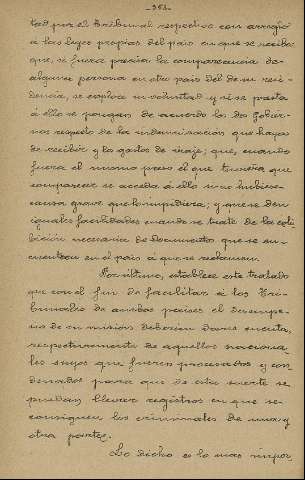 -353-
tad por el Tribunal respectivo con arreglo
á las leyes propias del pais en que se reciba;
que, si fuera precisa la comparecencia de
alguna persona en otro pais del de su resi-
dencia, se explore su voluntad y si se presta
á ello se pongan de acuerdo los dos Gobier-
nos respecto de la indemnización que haya
de recibir y los gastos de viaje; que, cuando
fuera el mismo preso el que tuviera que
comparecer se acceda á ello si no hubiese
causa grave que lo impidiera; y que se den
iguales facilidades cuando se trate de la exhi-
bición necesaria de documentos que se en-
cuentren en el pais á que se reclamen.
Por último, establece este tratado
que con el fin de facilitar á los Tri-
bunales de ambos paises el desempe-
ño de su misión deberían darse cuenta,
respectivamente de aquellos naciona-
les suyos que fueren procesados y con-
denados para que de esta suerte se
puedan llevar registros en que se
consignen los criminales de una y
otra parte.
Lo dicho es lo mas impor